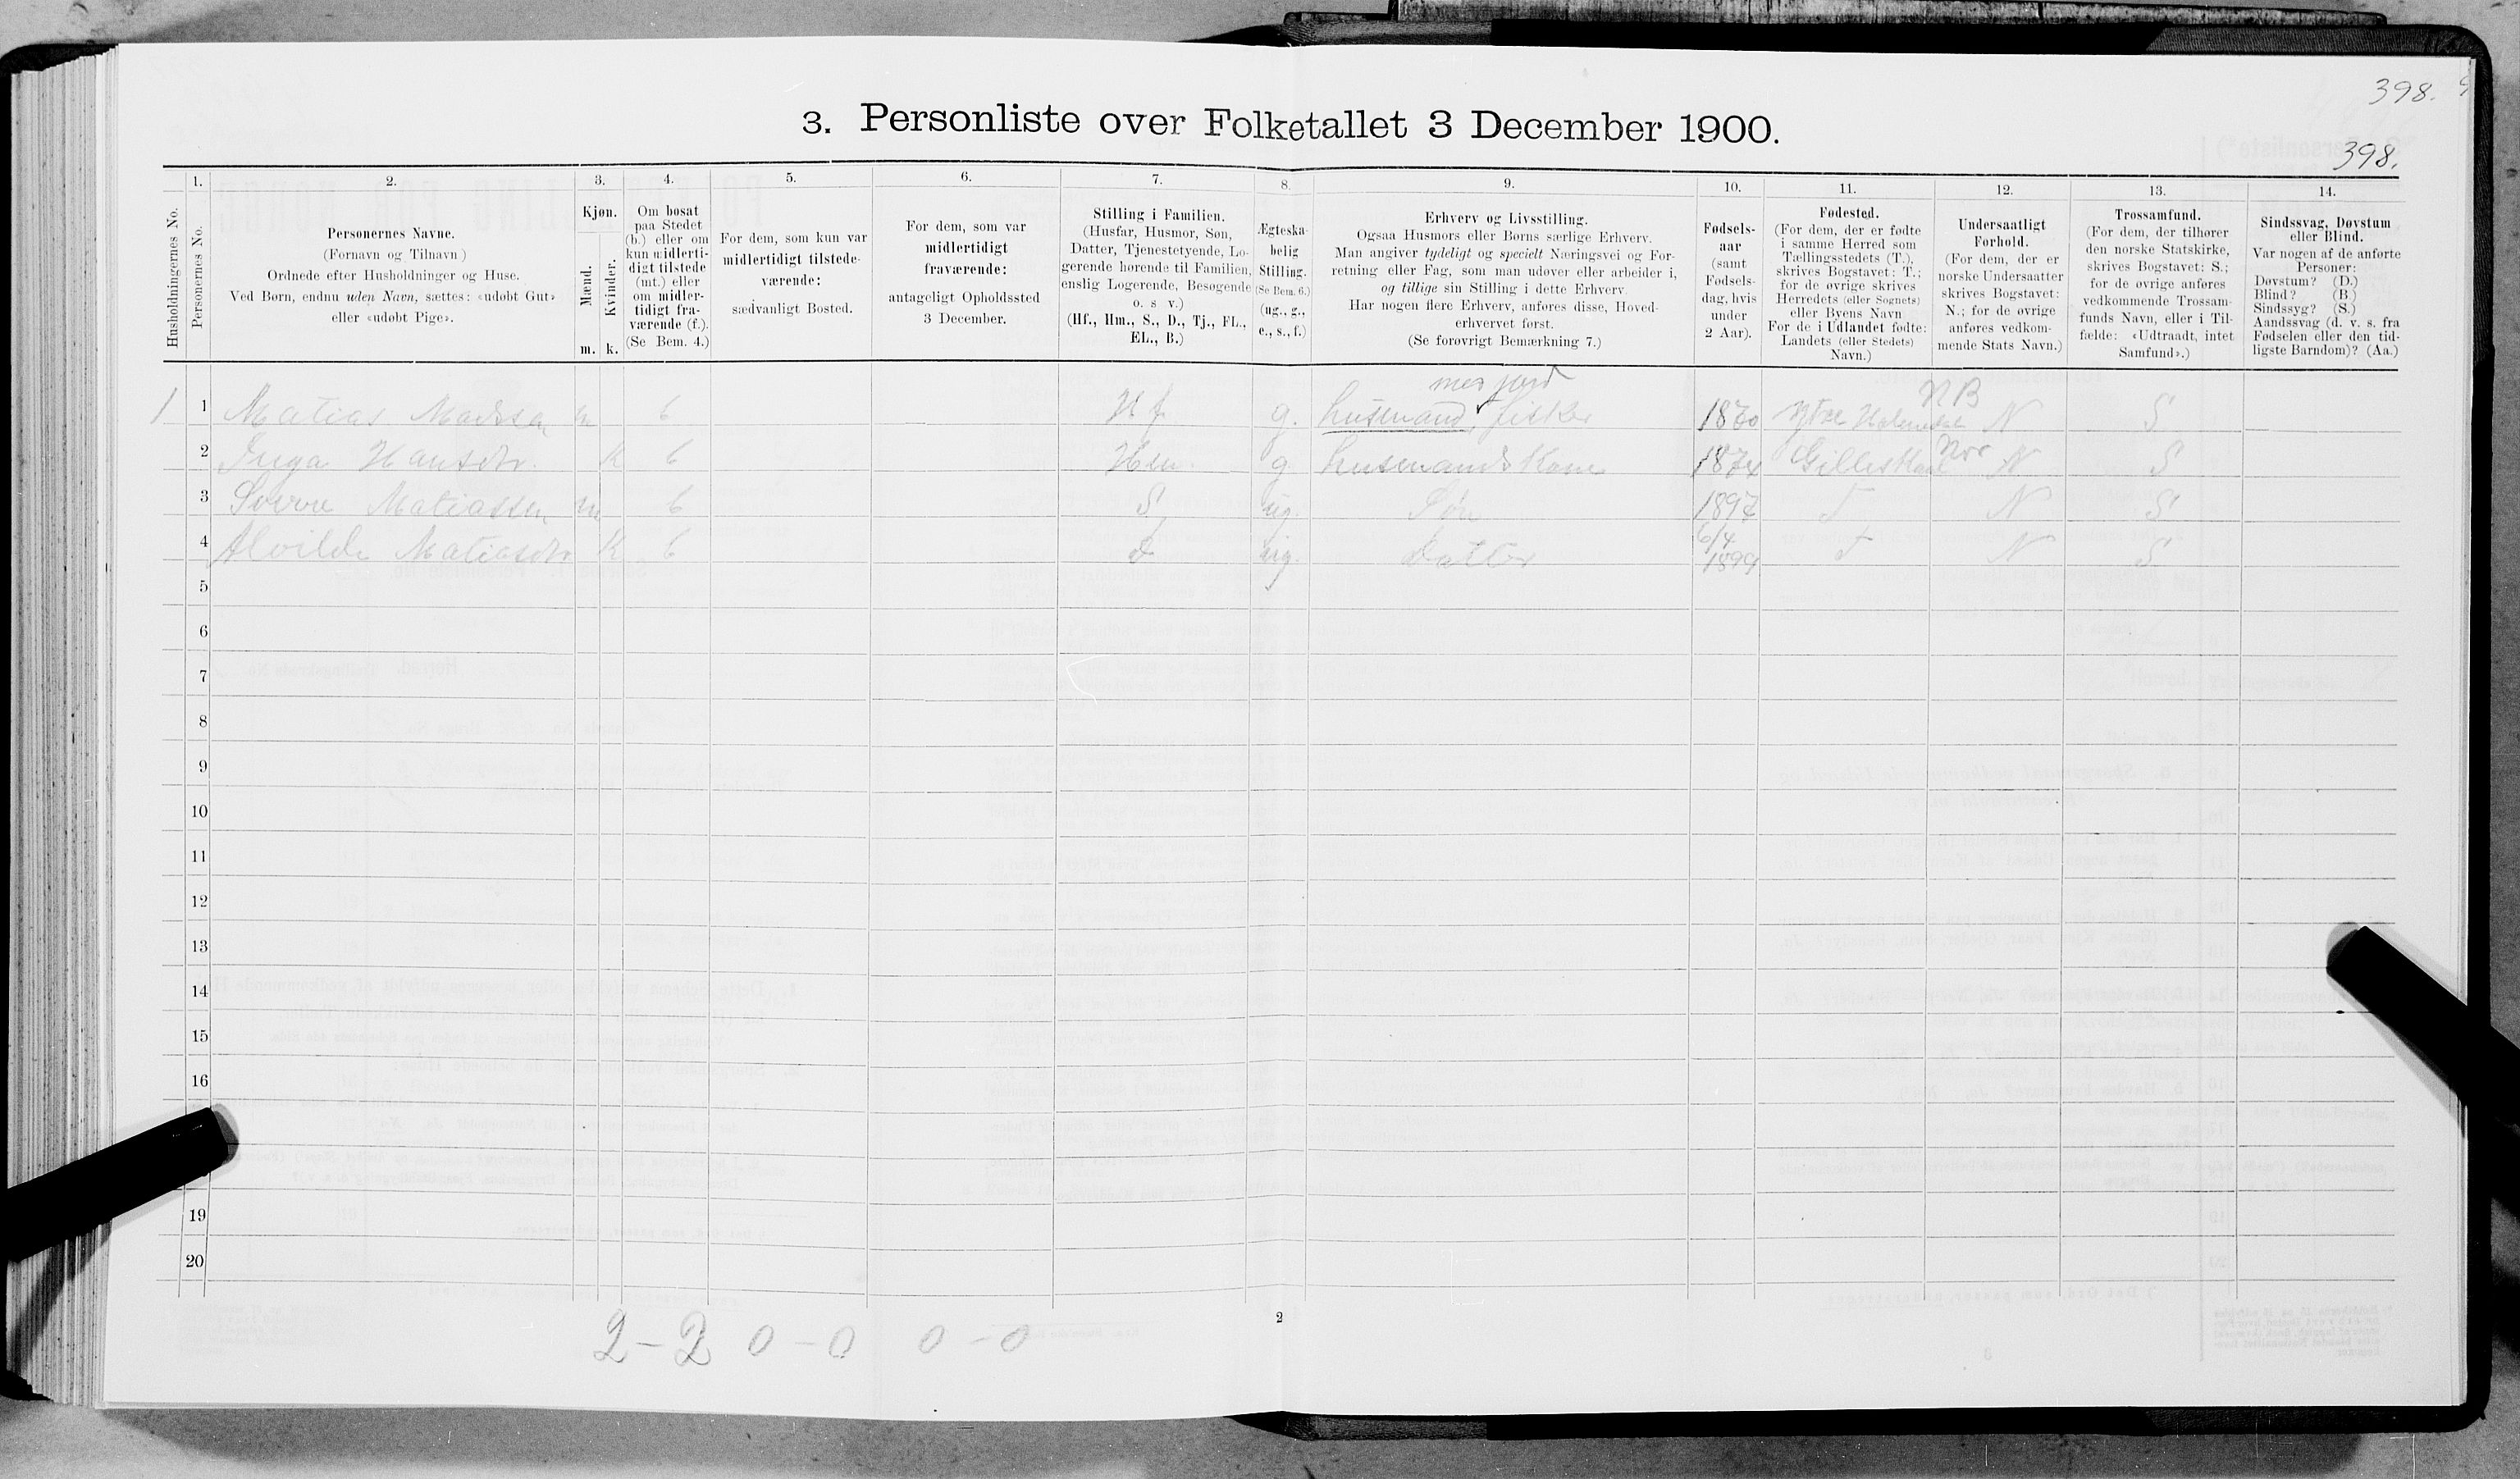 398.
3. Personliste over Folketallet 3 December 1900.
398.
Husholdningernes No.
1.
Personernes No.
2.
Personernes Navne.
(Fornavn og Tilnavn)
Ordnede efter Husholdninger og Huse.
Ved Børn, endnu uden Navn, sættes: «udøbt Gut»
eller «udøbt Pige».
3.
Kjøn.
Mænd.
Kvinder.
m. k.
4.
Om bosat
paa Stedet
(b.) eller om
kun midlerti-
digt tilstede
(mt.) eller
om midler-
tidigt fra-
værende (f.).
(Se Bem. 4.)
5.
For dem, som kun var
midlertidigt tilstede-
værende:
sædvanligt Bosted.
6.
For dem, som var
midlertidigt
fraværende:
antageligt Opholdssted
3 December.
7.
Stilling i Familien.
(Husfar, Husmor, Søn,
Datter, Tjenestetyende, Lo-
gerende hørende til Familien,
enslig Logerende, Besøgende
o. s v.)
(Hf., Hm., S., D., Tj., FL.,
EL., B.)
8.
Ægteska-
belig
Stilling.
(Se Bem. 6.)
(ug., g.,
e., s., f.)
9.
Erhverv og Livsstilling.
Ogsaa Husmors eller Børns særlige Erhverv.
Man angiver tydeligt og specielt Næringsvei og For-
retning eller Fag, som man udøver eller arbeider i,
og tillige sin Stilling i dette Erhverv.
Har nogen flere Erhverv, anføres disse, Hoved-
erhvervet først.
(Se forøvrigt Bemærkning 7.)
10.
Fødsels-
aar
(samt
Fødsels-
dag, hvis
under
2 Aar).
11.
Fødested.
(For dem, der er fødte
i samme Herred som
Tællingsstedets (T.),
skrives Bogstavet: T.;
for de øvrige skrives
Herredets (eller Sognets)
eller Byens Navn
For de i Udlandet fødte:
Landets (eller Stedets)
Navn.)
12.
Undersaatligt
Forhold.
(For dem, der er
norske Undersaatter
skrives Bogstavet:
N.; for de øvrige
anføres vedkom-
mende Stats Navn.)
13.
Trossamfund.
(For dem, der tilhører
den norske Statskirke,
skrives Bogstavet: S.;
for de øvrige anføres
vedkommende Trossam-
funds Navn, eller i Til-
fælde: «Udtraadt, intet
Samfund».)
14.
Sindssvag, Døvstum
eller Blind.
Var nogen af de anførte
Personer:
Døvstum? (D.)
Blind? (B.)
Sindssyg? (S.)
Aandssvag (d. v. s. fra
Fødselen eller den tid-
ligste Barndom)? (Aa.)
med jord NB
1 1 Matias Madssen m b Hf g. husmand, fisker 1870 N S
Nor
2 Inga Hansdtr. k b Hm. g husmands Kone 1874 Gilleskaal N S
3 Sverre Matiassen m b S ug. Søn 1897 T N S
4 Alvilde Matiasdtr k b D ug. Datter 6/4 1899 T N S
5
6
7
8
9
10
11
12
13
14
15
16
19
20
2 - 2 0 - 0 0 - 0
2